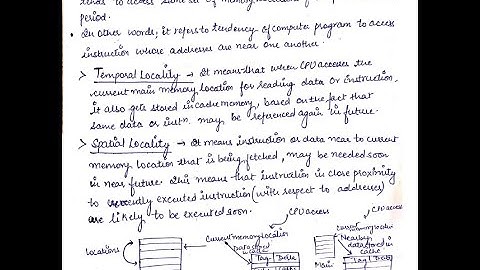 tends to access same set of memory locations
period.
• In other words, it refers to tendency of computer program to access
instruction whose addresses are near one another.
> Temporal Locality → It means that when CPU accesses the
current main memory location for reading data or instruction,
it also gets stored in cache memory, based on the fact that
same data or instn. may be referenced again in future.
> Spatial Locality → It means instruction or data near to current
memory location that is being fetched, may be needed soon
in near future. This means that instruction in close proximity
to recently executed instruction (with respect to addresses)
are likely to be executed soon.
CPU access
CPU access
Current memory location
Data stored
in cache
Current memory location
Nearby
data stored in
cache
Locations
Tag Data
Main
Tag Data